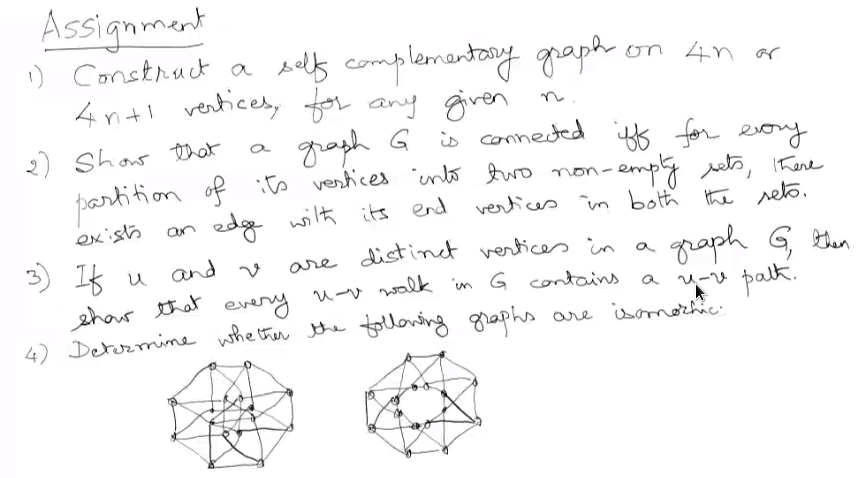 Assignment
1) Construct a self complementary graph on 4n or
4n+1 vertices, for any given n.
2) Show that a graph G is connected iff for every
partition of its vertices into two non-empty sets, there
exists an edge with its end vertices in both the sets.
3) If u and v are distinct vertices in a graph G, then
show that every u-v walk in G contains a u-v path.
4) Determine whether the following graphs are isomorphic.